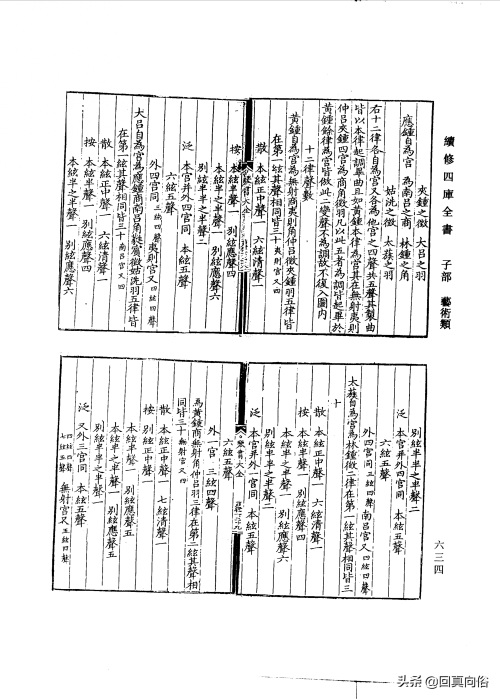 續修四庫全書 子部 藝術類
六三四
夾鍾之徵 大呂之羽
應鍾自為宮 為南呂之商 林鍾之角
姑洗之徵 太蔟之羽
右十二律各自為宮又各為他宮之四聲共五聲其製曲
皆以本律起調畢曲且如黃鍾本律為宮其在無射夷則
仲呂夾鍾四宮為商角徵羽凡以此五者為調皆起畢於
黃鍾餘律為宮皆倣此二變聲不為調故不復入圖內
十二律聲數
黃鍾自為宮為無射商夷則角仲呂徵夾鍾羽五律皆
在第一絃其聲相同皆三十夷則宮又四
散 本絃正中聲一 六絃清聲一
按 本絃半聲一 別絃應聲四
琴書大全
本絃半之半聲一 別絃應聲六
別絃半半之半聲二
泛 本宮并外四宮同 本絃五聲
六絃五聲
外四宮同三絃四聲 夷則宮又四絃四聲
大呂自為宮為應鍾商南呂角蕤賓徵姑洗羽五律皆
在第一絃其聲相同皆三十南呂宮又四
散 本絃正中聲一 六絃清聲一
按 本絃半聲一 別絃應聲四
本絃半之半聲一 別絃應聲六
別絃半半之半聲二
泛 本宮并外四宮同 本絃五聲
六絃五聲
外四宮同三絃四聲 南呂宮又四絃四聲
太蔟自為宮為林鍾徵二律在第一絃其聲相同皆三
十
散 本絃正中聲一 六絃清聲一
按 本絃半聲一 別絃應聲四
本絃半之半聲一 別絃應聲六
別絃半半之半聲二
泛 本宮并外一宮同 本絃五聲
琴書大全
六絃五聲
外一宮 三絃四聲
為黃鍾商無射角仲呂羽三律在第二絃其聲相
同皆三十無射宮又四
散 本絃正中聲一 七絃清聲一
按 別絃正中聲一
本絃半聲一 別絃應聲五
本絃半之半聲一 別絃應聲五
別絃半半之半聲一
泛 又外三宮同 本絃五聲
四絃四聲 七絃五聲 無射宮又五絃四聲
头条 @回真向俗